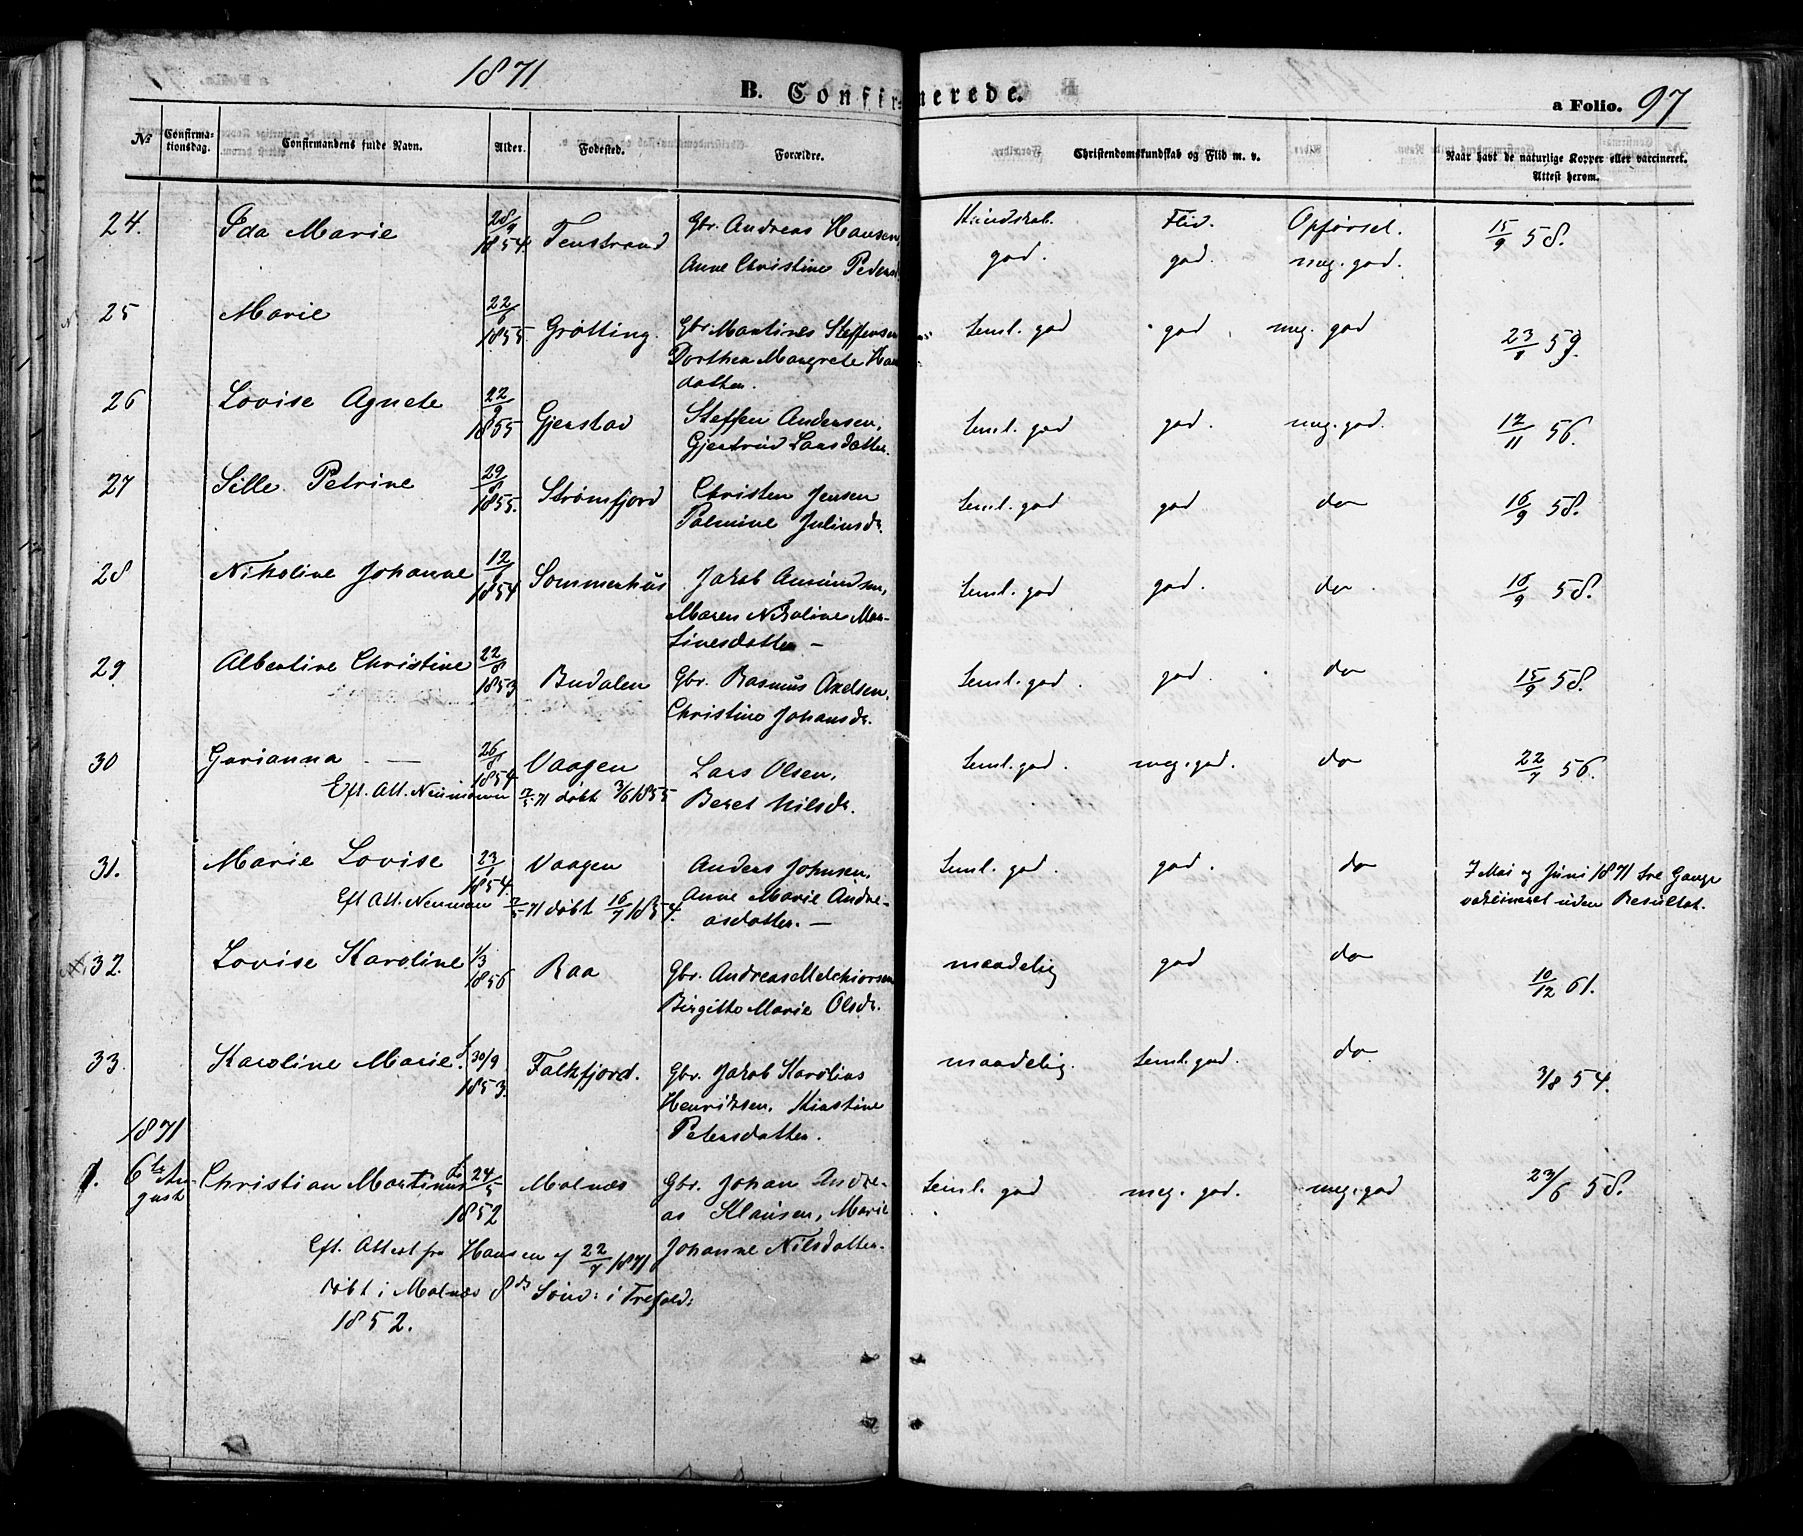 1871
B. Confirmerede.
a Folio. 97
No Confirmationsdag. Confirmandens fulde Navn. Alder. Fødested. Forældre. Christendomskundskab og Flid m. v. Naar havt de naturlige Kopper eller vaccineret. Attest herom.
24. Ida Marie 28/9 1854. Tenstrand Gbr. Andreas Hansen, Kundskab. Flid. Opførsel. 15/9 58.
Anne Christine Peders god. god. meg. god.
25 Marie 22/6 1855. Grøtting. Gbr. Martines Steffensen Teml. god god meg. god 23/8 59.
Dorthea Margrete Han
datter.
26 Lovise Agnete 22/9 1855 Gjerstad Steffen Andersen, Teml. god god. meg. god. 12/11 56.
Gjertrud Larsdatter.
27 Sille Petrine 29/8 1855. Strømfjord Christen Jensen Teml. god god do 16/9 58.
Palmine Juliusdr.
28 Nikoline Johanne 12/8 1854 Sommerhus Jakob Amundsen, Teml. god god. do. 16/9 58.
Maren Nikoline Mar-
tinesdatter —
29 Albertine Christine 22/8 1853 Budalen Gbr. Rasmus Axelsen, Teml. god. god. do 15/9 58.
Christine Johansdr.
30 Gurianna — 26/8 1854. Vaagen Lars Olsen, Teml. god. meg. god. do 22/7 56.
Eft. Att. Neumann 7/5 71 døbt 3/6 1855 Beret Nilsdr.
31. Marie Lovise 23/1 1854. Vaagen Anders Johnsen, Teml. god god. do I Mai og Juni 1871 tre Gange
Eft. Att. Neuman 7/5 71 døbt 16/7 1854. Anne Marie Andre- vakcineret uden Resultat.
asdatter. —
32. Lovise Karoline 1/3 1856 Raa Gbr. Andreas Melchiorsen maadelig god do 10/12 61.
Birgitte Marie Olsdr.
33. Karoline Marie. 30/9 1853. Falkfjord. Gbr. Jakob Karolius maadelig. Teml. god. do 3/8 54.
Henriksen, Kirstine
1871 Petersdatter.
1. 6te Au- Christian Martinus 24/5 1852 Malnæs Gbr. Johan Andre- Teml. god meg. god. meg. god 23/6 58.
gust as Klausen, Marie
Eft. Attest fra Hansen af 22/7 1871 Johanne Nilsdatter.
døbt i Malnæs 8de Sønd: i Trefold:
1852.